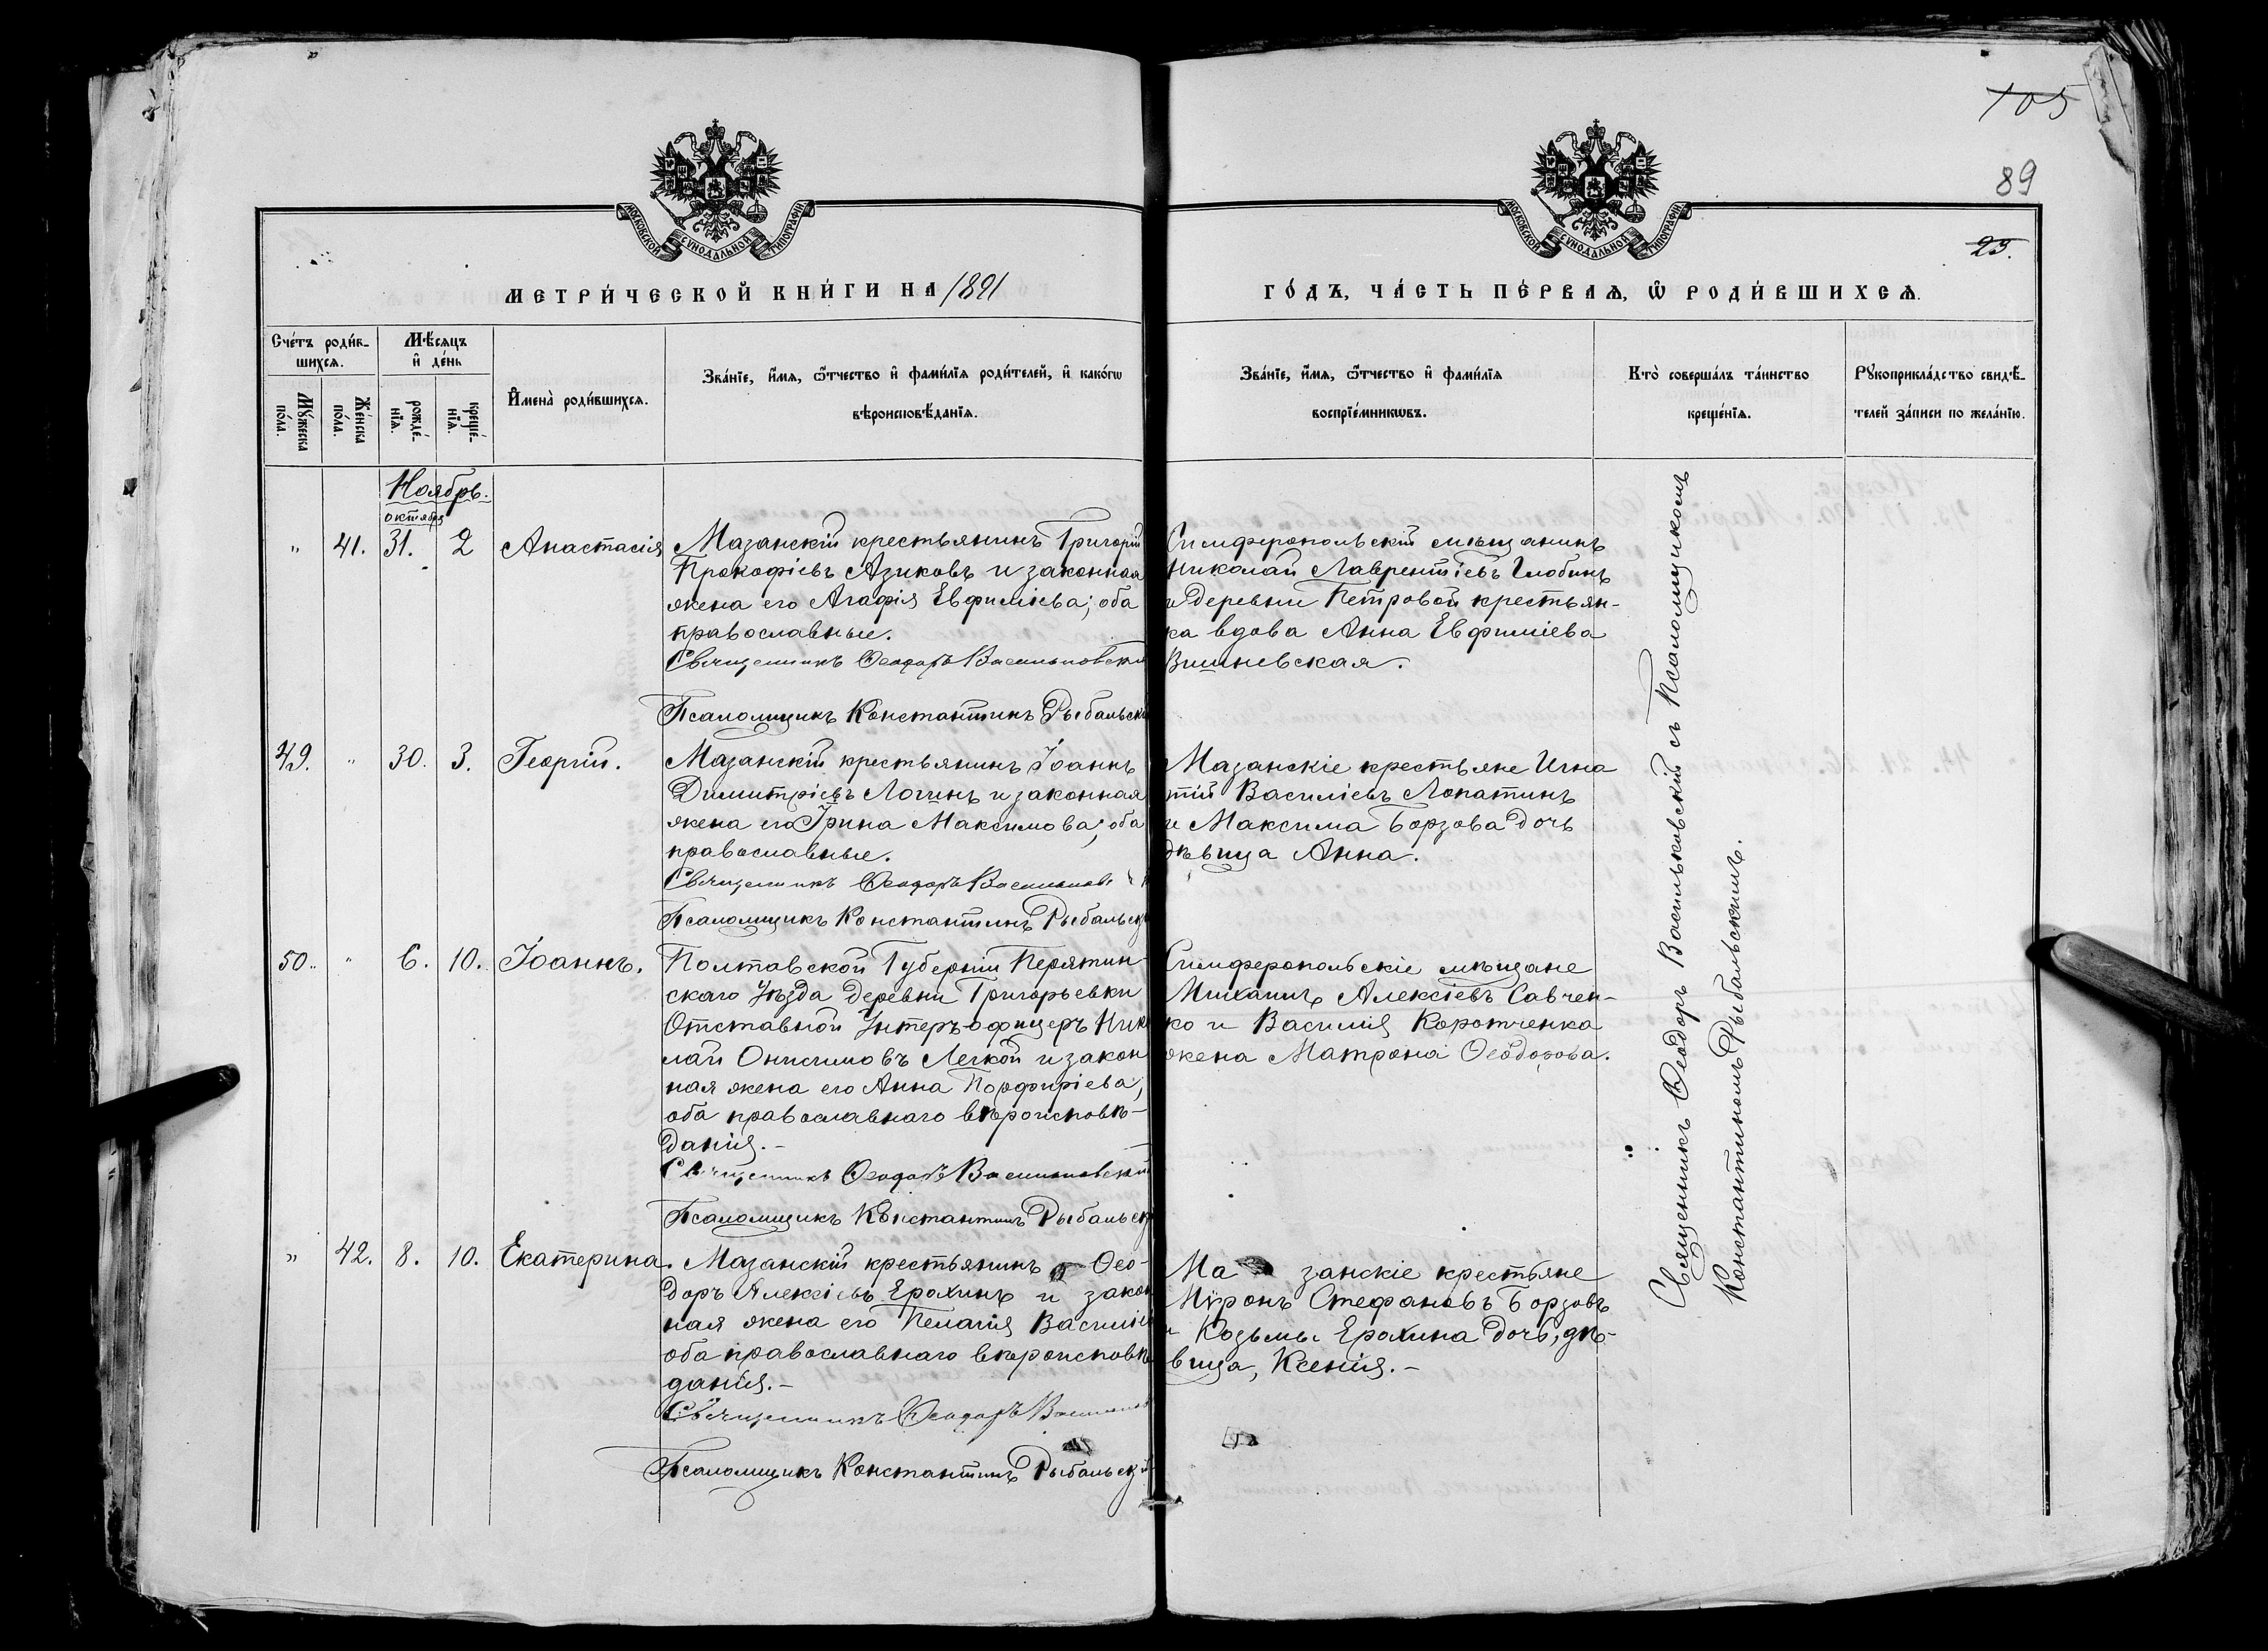 105
89
25.
МОСКОВСКОЙ СѴНОДАЛЬНОЙ ТИПОГРАФІИ
МОСКОВСКОЙ СѴНОДАЛЬНОЙ ТИПОГРАФІИ
МЕТРИ́ЧЕСКОЙ КНИ́ГИ НА 1891
ГО́ДЪ, ЧА́СТЬ ПЕ́РВАѦ, Ѡ҆ РОДИ́ВШИХСѦ.
Сче́тъ роди́в-
шихсѧ.
Мꙋ́жеска
по́ла.
Же́нска
по́ла.
Мѣ́сѧцъ
и҆ де́нь
рожде́-
нїѧ.
креще́-
нїѧ.
И҆мена̀ роди́вшихсѧ.
Зва́нїе, и҆́мѧ, ѻ҆́тчество и҆ фами́лїѧ роди́телей, и҆ како́гѡ
вѣроисповѣ́данїѧ.
Зва́нїе, и҆́мѧ, ѻ҆́тчество и҆ фами́лїѧ
воспрїе́мникѡвъ.
Кто̀ соверша́лъ та́инство
креще́нїѧ.
Рꙋкоприкла́дство свидѣ́-
телей за́писи по жела́нїю.
Ноябрь.
октября
" 41. 31. 2 Анастасія
Мазанскій крестьянинъ Григорій
Прокофіевъ Азиковъ и законная
жена его Агафія Евфиміева; оба
православные.
Священникъ Ѳеодоръ Васильковскій
Псаломщикъ Константинъ Рыбальскі
Симферопольскій мѣщанинъ
Николай Лаврентіевъ Глобинъ
и деревни Петровой крестьян-
ка вдова Анна Евфиміева
Вишневская.
49. " 30. 3. Георгій.
Мазанскій крестьянинъ Іоаннъ
Димитріевъ Логинъ и законная
жена его Ірина Максимова; оба
православные.
Священникъ Ѳеодоръ Васильковс
Псаломщикъ Константинъ Рыбальск
Мазанскіе крестьяне Игна
тій Василіевъ Лопатинъ
и Максима Борзова дочь
дѣвица Анна.
50. " 6. 10. Іоаннъ.
Полтавской Губерніи Перятин-
скаго Уѣзда деревни Григорьевки
Отставной Унтеръ-офицеръ Нико
лай Онисимовъ Легкой и закон
ная жена его Анна Порфиріева;
оба православнаго вѣроисповѣ-
данія.-
Священникъ Ѳеодоръ Васильковскій
Псаломщикъ Константинъ Рыбальск
Симферопольскіе мѣщане
Михаилъ Алексіевъ Савчен-
ко и Василія Коротченка
жена Матрона Ѳеодорова.
" 42. 8. 10. Екатерина.
Мазанскій крестьянинъ Ѳео-
доръ Алексіевъ Ерохинъ и закон
ная жена его Пелагія Василіе
оба православнаго вѣроисповѣ
данія.-
Священникъ Ѳеодоръ Васильков
Псаломщикъ Константинъ Рыбальскій
Ма занскіе крестьяне
Мѵронъ Стефановъ Борзовъ
и Козьмы Ерохина дочь, дѣ-
вица, Ксенія.-
Священникъ Ѳеодоръ Васильковскій съ Псаломщикомъ
Константиномъ Рыбальскимъ.